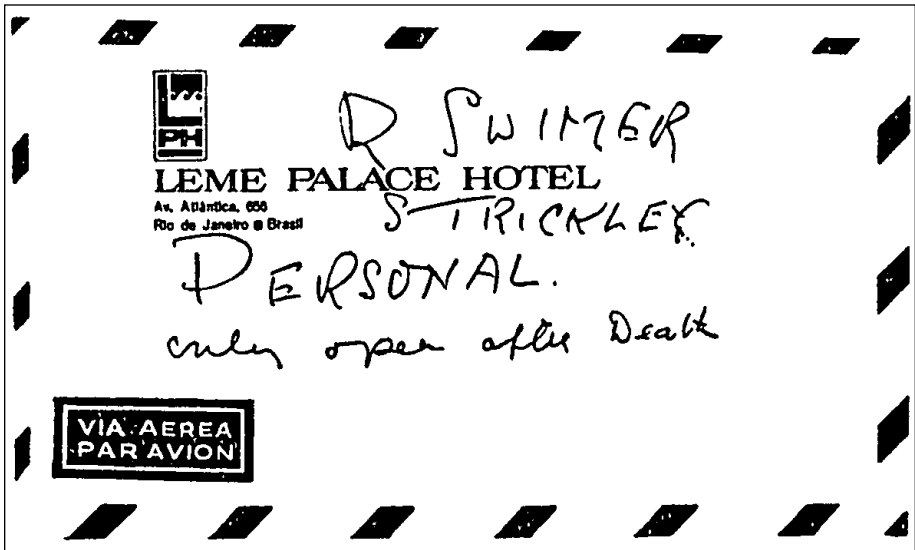 PH
R SWIMER
LEME PALACE HOTEL
Av. Atlântica, 656
Rio de Janeiro Brasil
STRICKLEY
PERSONAL.
only open after Death
VIA AEREA
PAR AVION